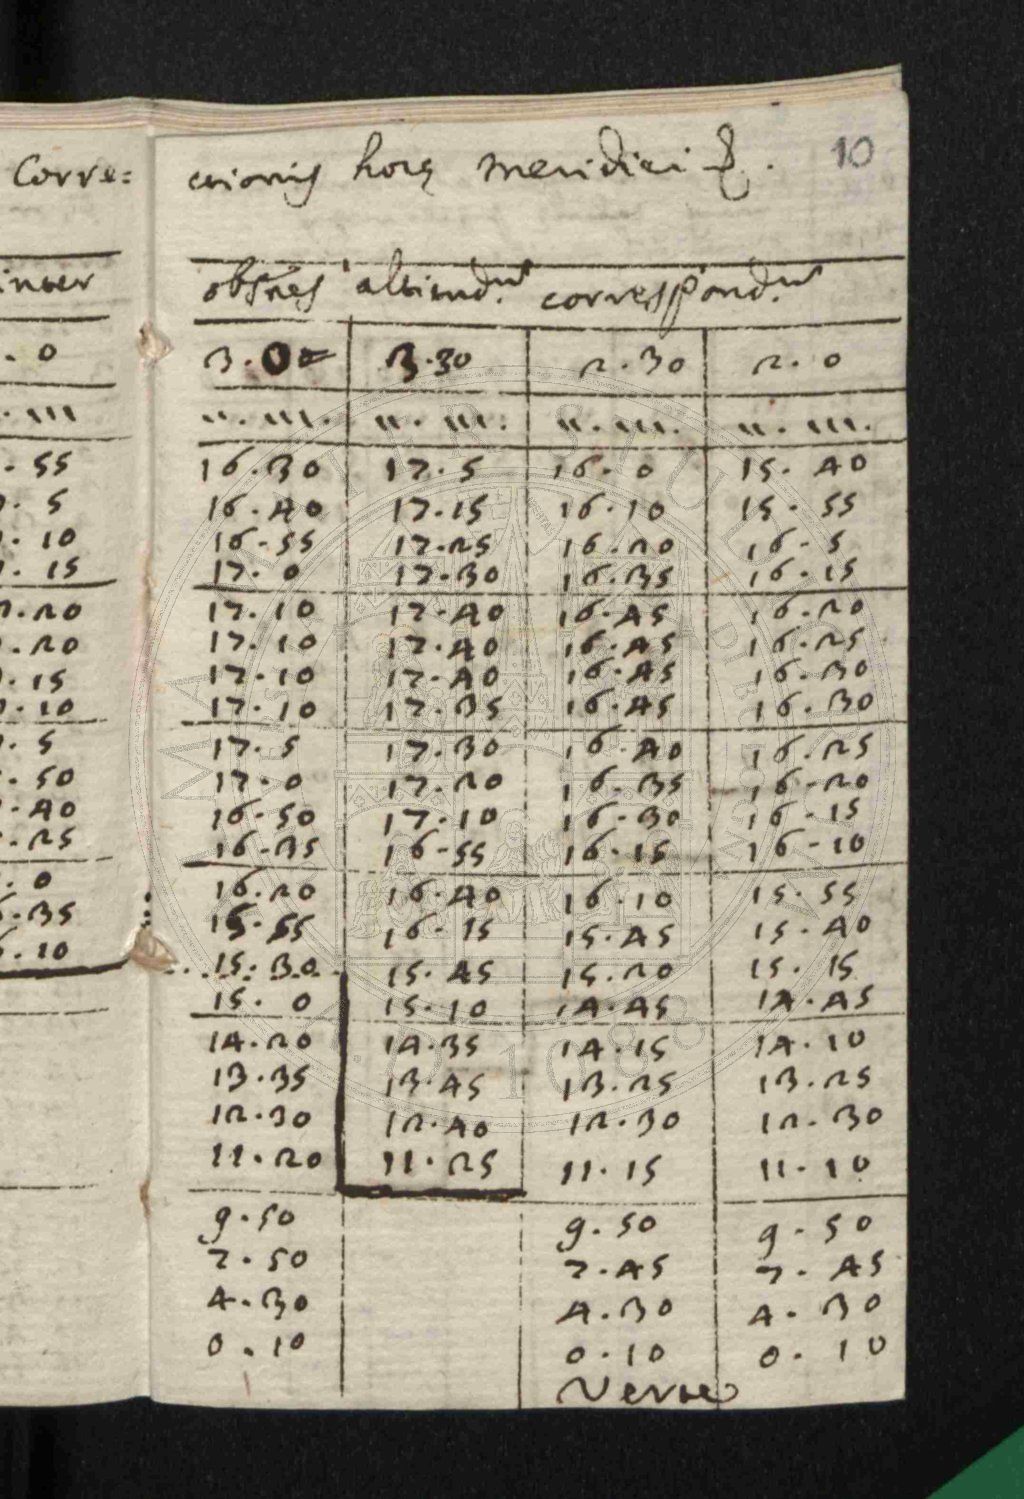 Corre= ctionis horæ meridiei 10
inter obſnes altitud. correspond.
. 0 3.0 3.30 2.30 2.0
. ''' ''. '''. ''. '''. ''. '''. ''. '''.
. 55 16.30 17.5 16.0 15.40
. 5 16.40 17.15 16.10 15.55
. 10 16.55 17.25 16.20 16.5
. 15 17.0 17.30 16.35 16.15
.20 17.10 17.40 16.45 16.20
.20 17.10 17.40 16.45 16.25
. 15 17.10 17.40 16.45 16.30
. 10 17.10 17.35 16.45 16.30
. 5 17.5 17.30 16.40 16.25
. 50 17.0 17.20 16.35 16.20
. 40 16.50 17.10 16.30 16.15
. 25 16.35 16.55 16.15 16.10
. 0 16.20 16.40 16.10 15.55
.35 15.55 16.15 15.45 15.40
.10 15.30 15.45 15.20 15.15
15.0 15.10 14.45 14.45
14.20 14.35 14.15 14.10
13.35 13.45 13.25 13.25
12.30 12.40 12.30 12.30
11.20 11.25 11.15 11.10
9.50 9.50 9.50
7.50 7.45 7.45
4.30 4.30 4.30
0.10 0.10 0.10
Verte